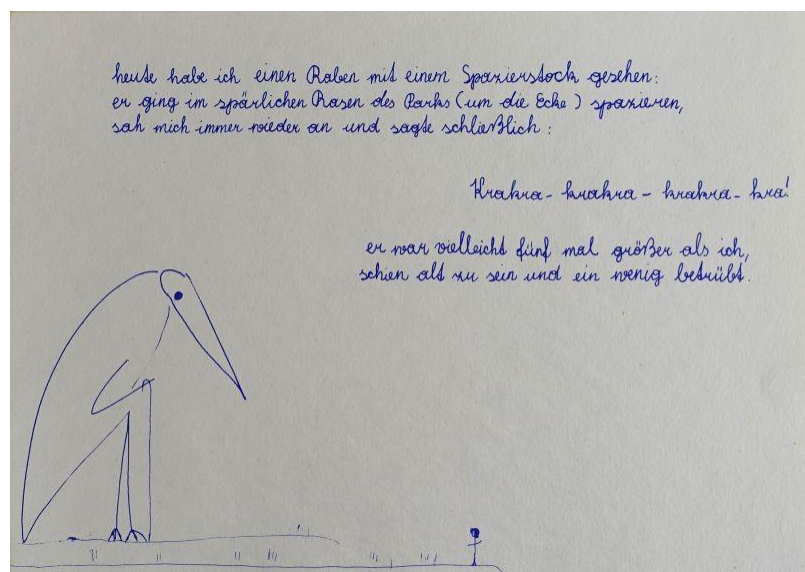 heute habe ich einen Raben mit einem Spazierstock gesehen:
er ging im spärlichen Rasen des Parks (um die Ecke) spazieren,
sah mich immer wieder an und sagte schließlich:
Krakra - krakra - krakra - kra!
er war vielleicht fünf mal größer als ich,
schien alt zu sein und ein wenig betrübt.